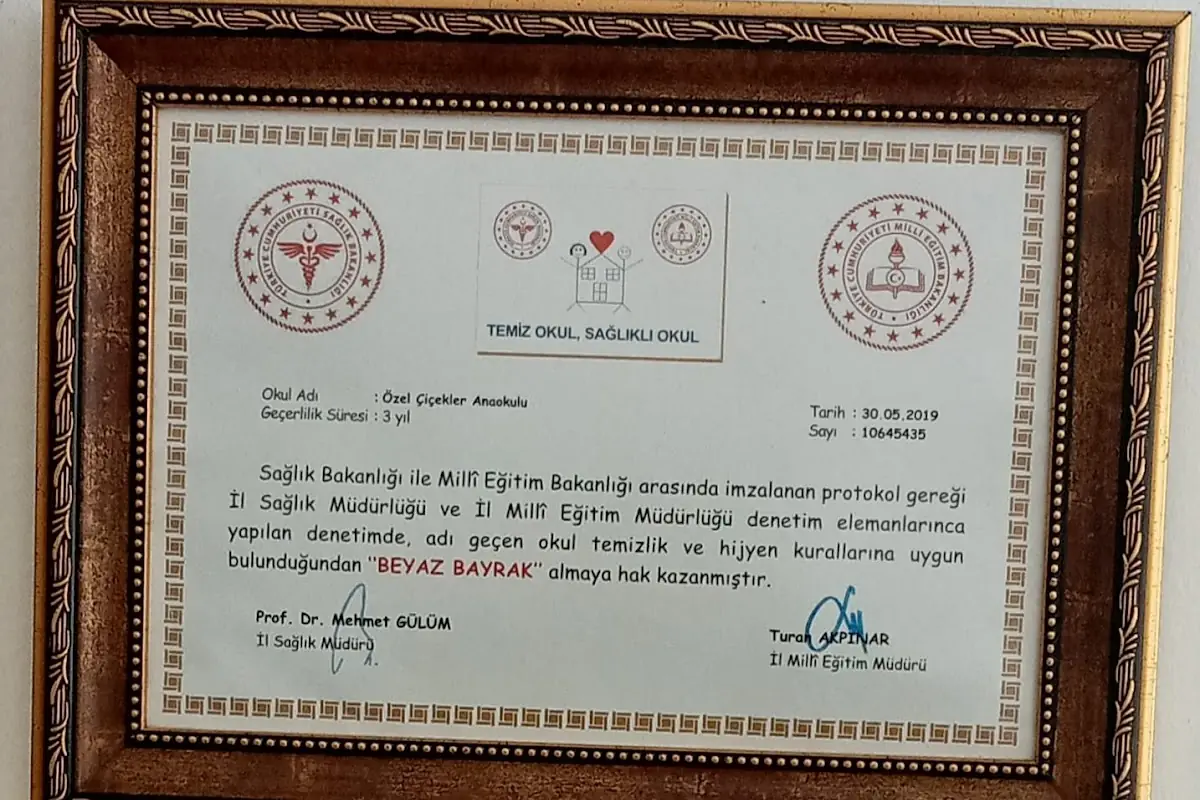 TÜRKİYE CUMHURİYETİ SAĞLIK BAKANLIĞI
TEMİZ OKUL, SAĞLIKLI OKUL
TÜRKİYE CUMHURİYETİ MİLLİ EĞİTİM BAKANLIĞI
Okul Adı : Özel Çiçekler Anaokulu
Geçerlilik Süresi : 3 yıl
Tarih : 30.05.2019
Sayı : 10645435
Sağlık Bakanlığı ile Millî Eğitim Bakanlığı arasında imzalanan protokol gereği
İl Sağlık Müdürlüğü ve İl Millî Eğitim Müdürlüğü denetim elemanlarınca
yapılan denetimde, adı geçen okul temizlik ve hijyen kurallarına uygun
bulunduğundan "BEYAZ BAYRAK" almaya hak kazanmıştır.
Prof. Dr. Mehmet GÜLÜM
İl Sağlık Müdürü
Turan AKPINAR
İl Millî Eğitim Müdürü